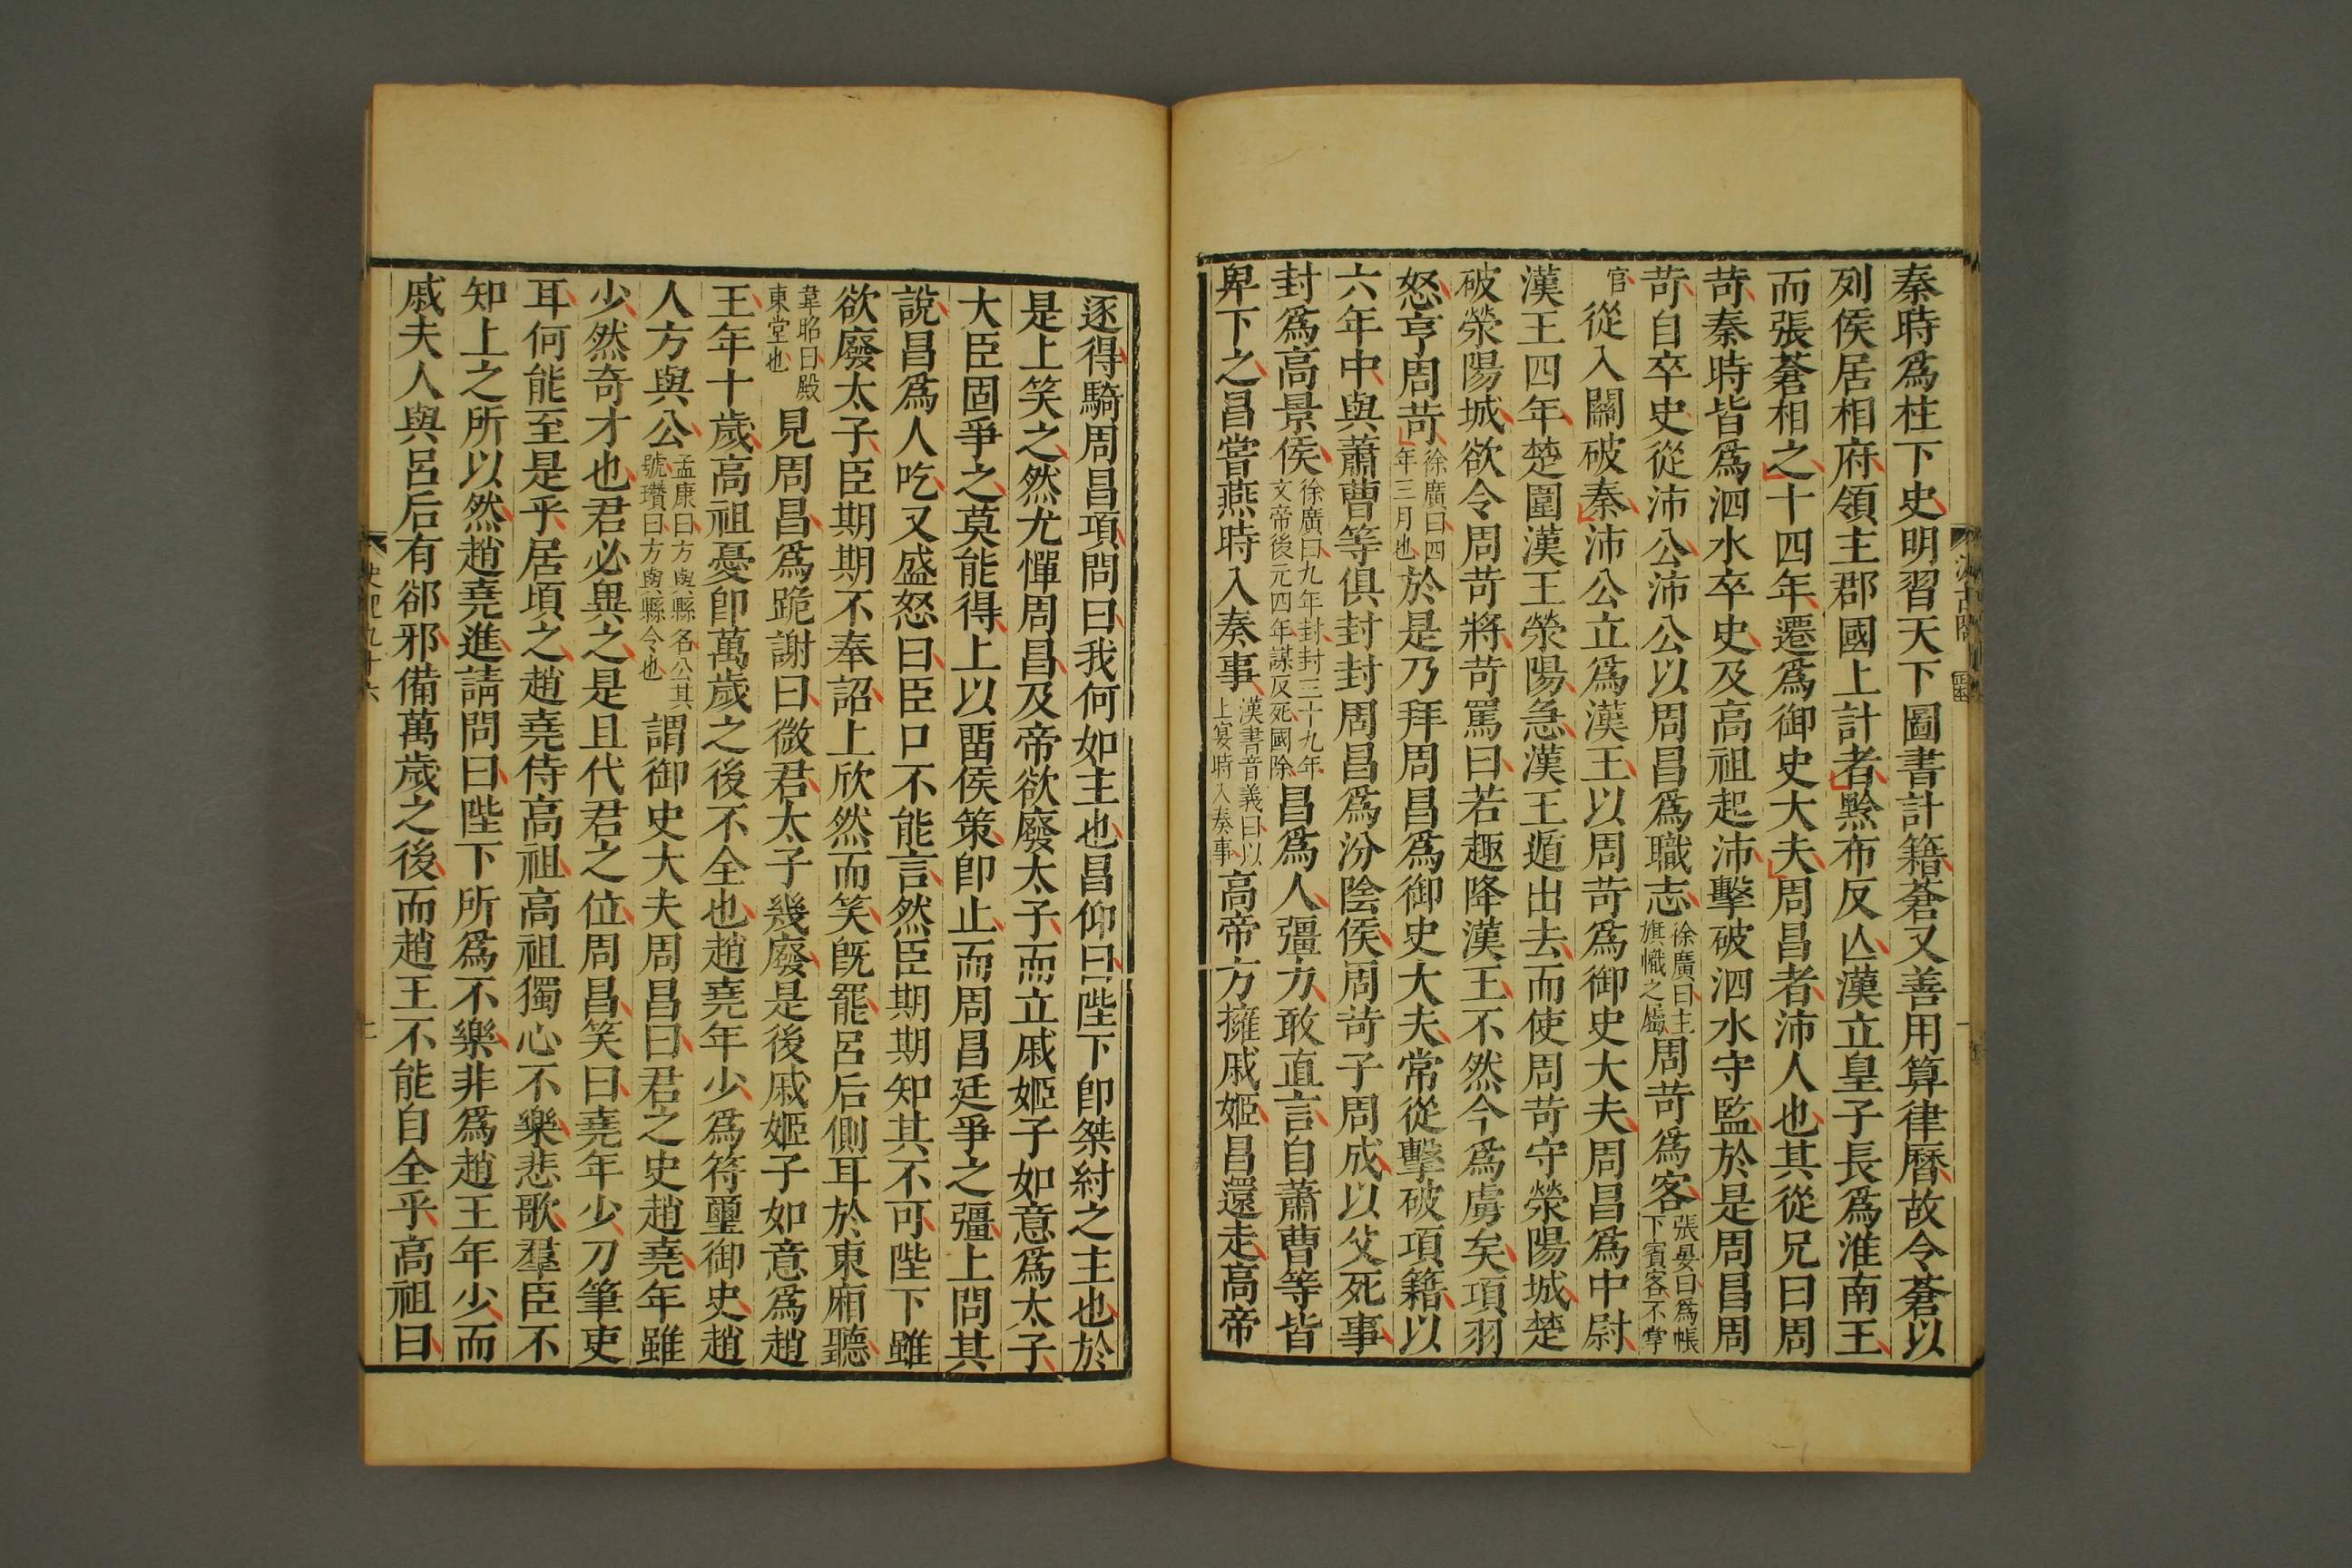 秦時爲柱下史明習天下圖書計籍蒼又善用算律曆故令蒼以
列侯居相府領主郡國上計者黥布反亾漢立皇子長爲淮南王
而張蒼相之十四年遷爲御史大夫周昌者沛人也其從兄曰周
苛秦時皆爲泗水卒史及高祖起沛擊破泗水守監於是周昌周
苛自卒史從沛公沛公以周昌爲職志徐廣曰主旗幟之屬周苛爲客張晏曰爲帳下賓客不掌
官從入關破秦沛公立爲漢王以周苛爲御史大夫周昌爲中尉
漢王四年楚圍漢王滎陽急漢王遁出去而使周苛守滎陽城楚
破滎陽城欲令周苛將苛罵曰若趣降漢王不然今爲虜矣項羽
怒亨周苛徐廣曰四年三月也於是乃拜周昌爲御史大夫常從擊破項籍以
六年中與蕭曹等俱封封周昌爲汾陰侯周苛子周成以父死事
封爲高景侯徐廣曰九年封封三十九年文帝後元四年謀反死國除昌爲人彊力敢直言自蕭曹等皆
卑下之昌嘗燕時入奏事漢書音義曰以上宴時入奏事高帝方擁戚姬昌還走高帝
逐得騎周昌項問曰我何如主也昌仰曰陛下卽桀紂之主也於
是上笑之然尤憚周昌及帝欲廢太子而立戚姬子如意爲太子
大臣固爭之莫能得上以畱侯策卽止而周昌廷爭之彊上問其
說昌爲人吃又盛怒曰臣口不能言然臣期期知其不可陛下雖
欲廢太子臣期期不奉詔上欣然而笑旣罷呂后側耳於東廂聽
韋昭曰殿東堂也見周昌爲跪謝曰微君太子幾廢是後戚姬子如意爲趙
王年十歲高祖憂卽萬歲之後不全也趙堯年少爲符璽御史趙
人方與公孟康曰方與縣名公其號瓚曰方與縣令也謂御史大夫周昌曰君之史趙堯年雖
少然奇才也君必異之是且代君之位周昌笑曰堯年少刀筆吏
耳何能至是乎居頃之趙堯侍高祖高祖獨心不樂悲歌羣臣不
知上之所以然趙堯進請問曰陛下所爲不樂非爲趙王年少而
戚夫人與呂后有郤邪備萬歲之後而趙王不能自全乎高祖曰
史記九十六